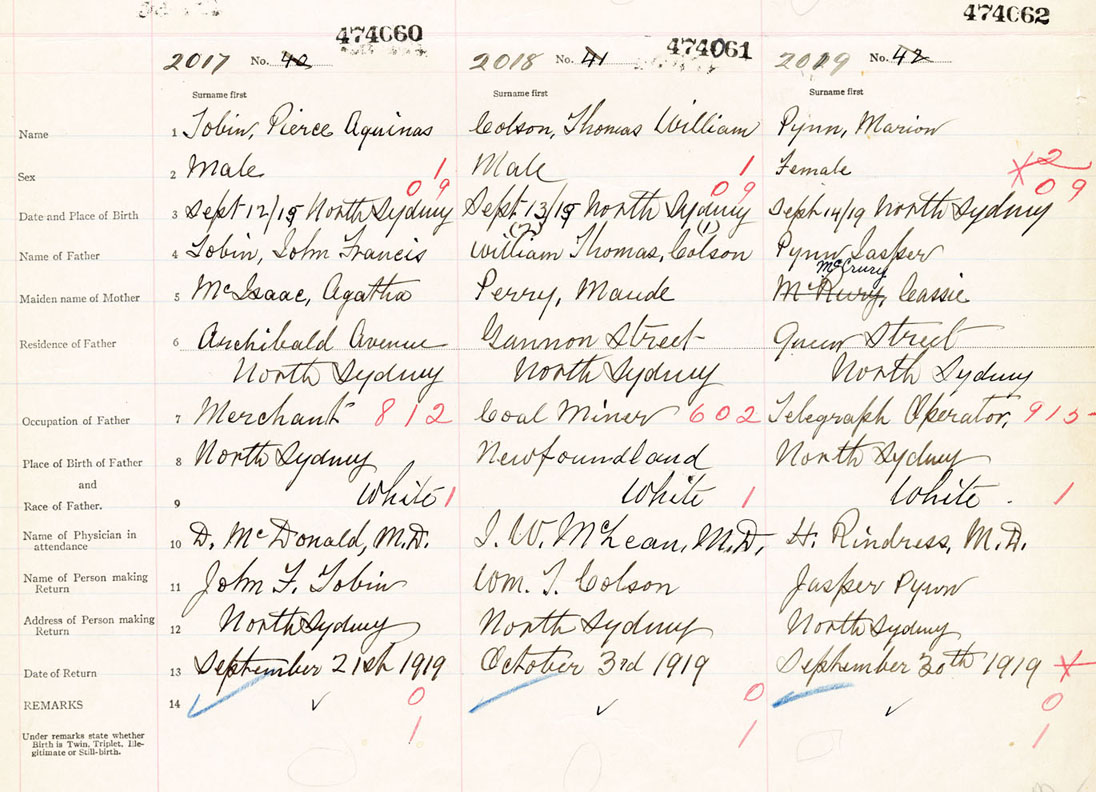 474060 474061 474062
2017 No. 40 2018 No. 41 2019 No. 42
Surname first Surname first Surname first
Name 1 Tobin, Pierce Aquinas Colson, Thomas William Pynn, Marion
Sex 2 Male 1 Male 1 Female 2
09 09 09
Date and Place of Birth 3 Sept 12/19 North Sydney Sept 13/19 North Sydney Sept 14/19 North Sydney
(2) (1)
Name of Father 4 Tobin, John Francis William Thomas, Colson Pynn, Jasper
McCrury
Maiden name of Mother 5 McIsaac, Agatha Perry, Maude McRury, Cassie
Residence of Father 6 Archibald Avenue Gannon Street Queen Street
North Sydney North Sydney North Sydney
Occupation of Father 7 Merchant 812 Coal Miner 602 Telegraph Operator, 915
Place of Birth of Father 8 North Sydney Newfoundland North Sydney
and
Race of Father. 9 White 1 White 1 White . 1
Name of Physician in
attendance 10 D. McDonald, M.D. J. W. McLean, M.D. H. Rindress, M.D.
Name of Person making
Return 11 John F. Tobin Wm. T. Colson Jasper Pynn
Address of Person making
Return 12 North Sydney North Sydney North Sydney
Date of Return 13 September 21st 1919 October 3rd 1919 September 30th 1919
REMARKS 14 0 0 0
Under remarks state whether
Birth is Twin, Triplet, Ille-
gitimate or Still-birth. 1 1 1